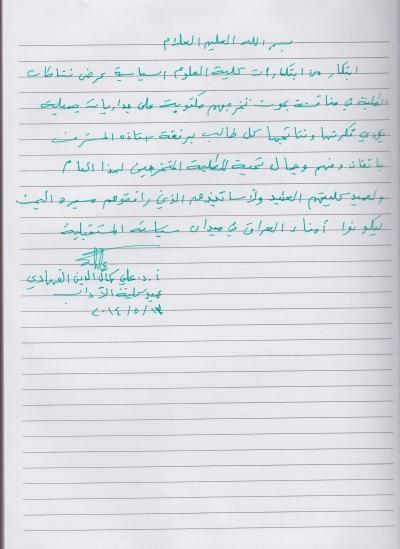 بسم الله العليم العلام
ابتكار من ابتكارات كلية العلوم السياسية عرض نشاطات
الطلبة في مناقشة بحوث تخرجهم مكتوبة على جداريات جميلة
يؤدي فكرتها ونتائجها كل طالب برفقة استاذه المشرف
باتقان وفهم وجمال تحية للطلبة المتخرجين لهذا العام
ولعميد كليتهم العتيد ولأساتيذهم الذين رافقوهم مسيرة البحث
ليكونوا أمناء العراق في ميدان سياسته المستقبلية
أ.د. علي كمال الدين الفهادي
عميد كلية الآداب
٢٠١٤/٥/١٢